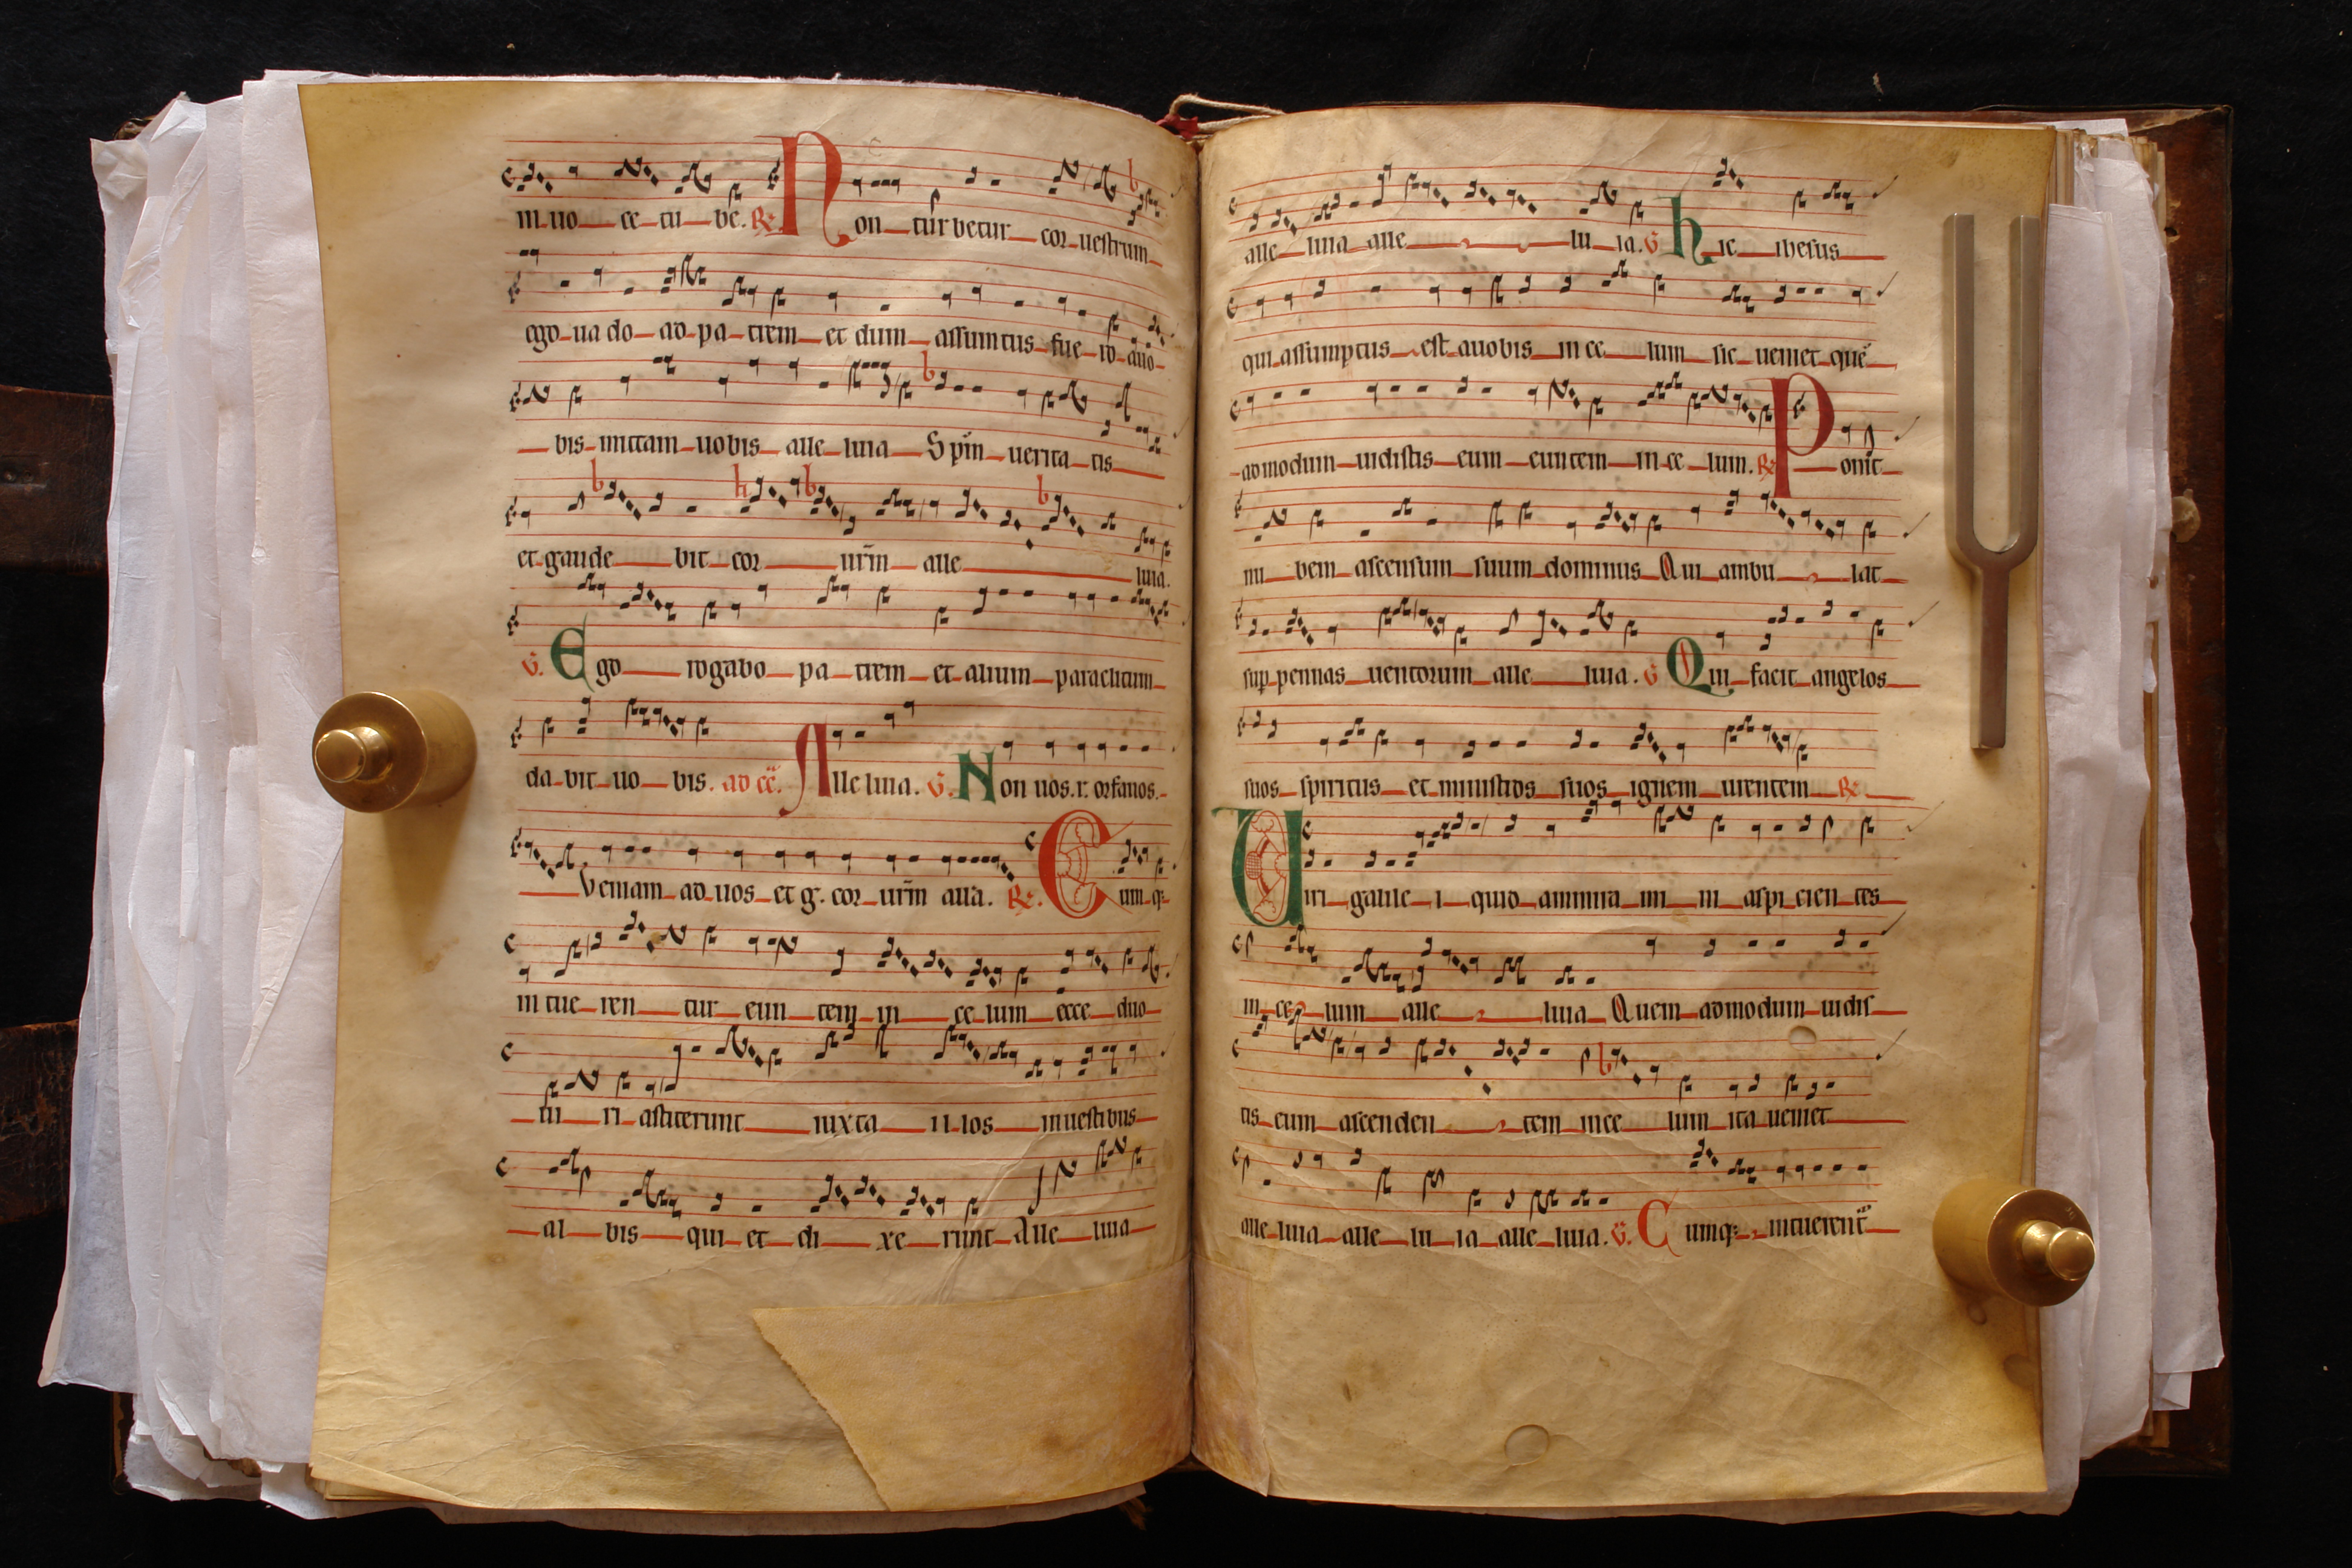 in uo ce tu be. R. Non turbetur cor uestrum
ego uado ad pa trem et dum assumtus fue ro auo
bis mittam uobis alle luia Spm uerita tis
et gaude bit cor urm alle luia.
V. Ego rogabo pa trem et alium paraclitum
da bit uo bis. ad ce. Alle luia. V. Non uos. r. orfanos.
Veniam ad uos et g. cor urm alla. R. Cum q;
in tue ren tur eun tem in ce lum ecce duo
ui ri astiterunt iuxta il los in uestibus
al bis qui et di xe runt Alle luia
alle luia alle lu ia. V. hic ihesus
qui assumptus est auobis in ce lum sic ueniet que
admodum uidistis eum euntem in ce lum. R. Ponit
nu bem ascensum suum dominus Qui ambu lat
sup pennas uentorum alle luia. V Qui facit angelos
suos spiritus et ministros suos ignem urentem R.
Uiri galile i quid ammira mi ni aspi cien tes
in ce lum alle luia Quem admodum uidis
tis eum ascenden tem in ce lum ita ueniet
alle luia alle lu ia alle luia. V. Cumq; intuerent